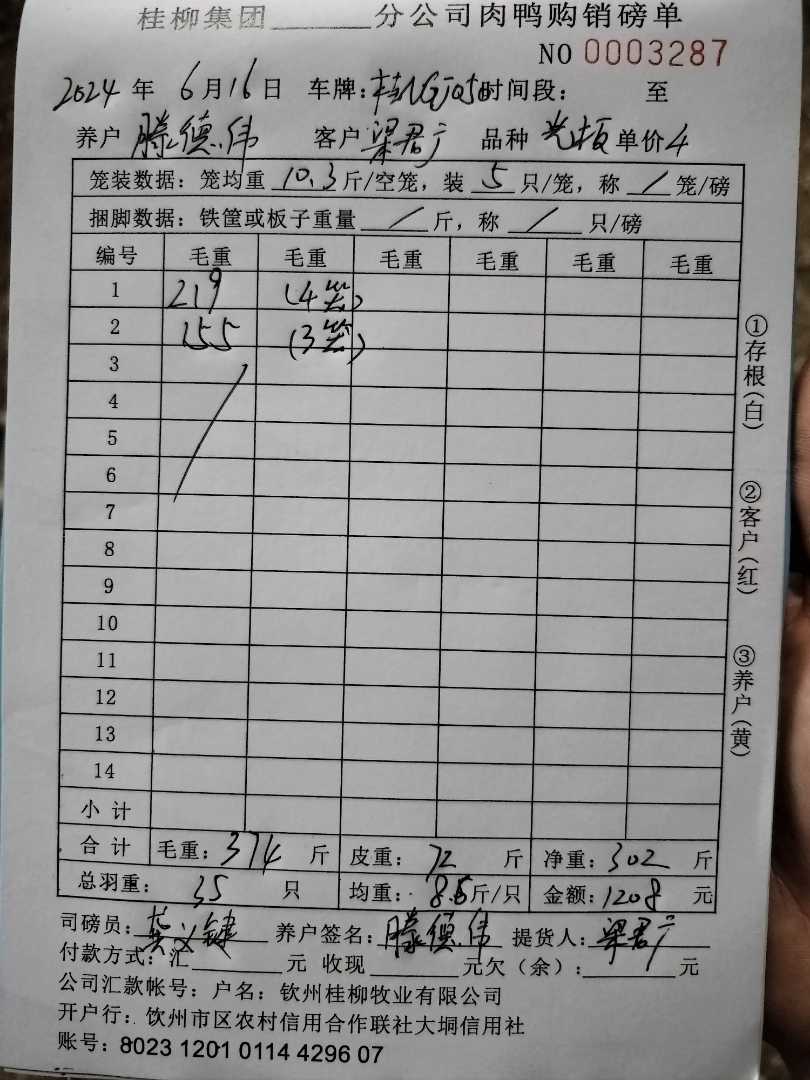 桂柳集团______分公司肉鸭购销磅单
NO 0003287
2024年6月16日 车牌: 时间段: 至
养户 滕德伟 客户 梁君广 品种 光板 单价4
笼装数据: 笼均重 10.3 斤/空笼, 装 5 只/笼, 称 / 笼/磅
捆脚数据: 铁筐或板子重量 / 斤, 称 / 只/磅
编号 毛重 毛重 毛重 毛重 毛重 毛重
1 219 (4笼)
2 155 (3笼)
3
4
5
6
7
8
9
10
11
12
13
14
小计
合计 毛重: 374 斤 皮重: 72 斤 净重: 302 斤
总羽重: 35 只 均重: 8.6斤/只 金额: 1208 元
司磅员: 养户签名: 滕德伟 提货人: 梁君广
付款方式: 汇______元 收现______元欠(余):______元
公司汇款帐号: 户名: 钦州桂柳牧业有限公司
开户行: 钦州市区农村信用合作联社大垌信用社
账号: 8023 1201 0114 4296 07
①存根(白)
②客户(红)
③养户(黄)